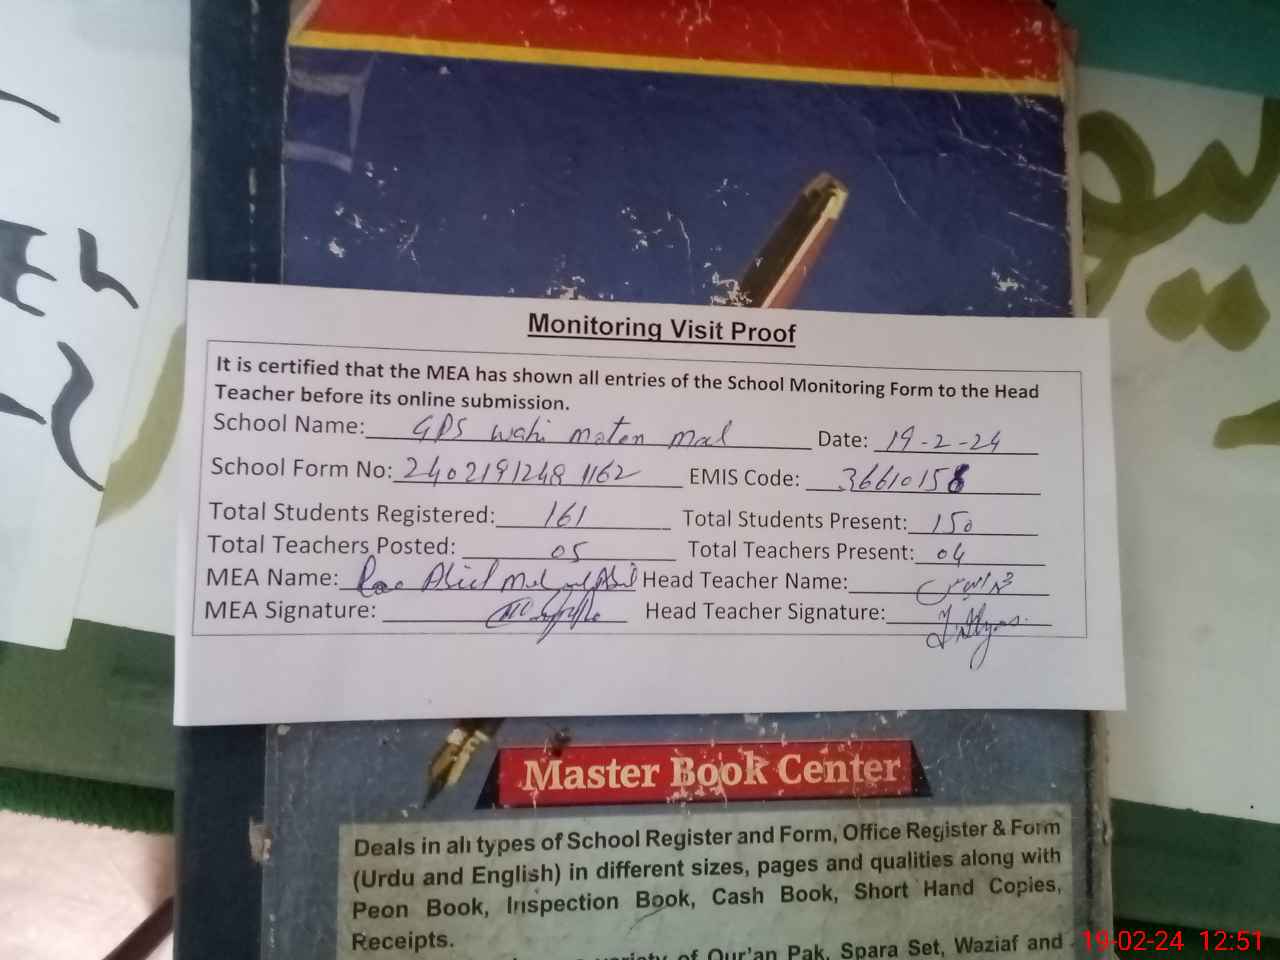 Monitoring Visit Proof
It is certified that the MEA has shown all entries of the School Monitoring Form to the Head
Teacher before its online submission.
School Name: GPS Wahi Moten Mal Date: 19-2-24
School Form No: 2402191248 1162 EMIS Code: 36610158
Total Students Registered: 161 Total Students Present: 150
Total Teachers Posted: 05 Total Teachers Present: 04
MEA Name: Rao Abid Head Teacher Name:
MEA Signature: Head Teacher Signature:
Master Book Center
Deals in all types of School Register and Form, Office Register & Form
(Urdu and English) in different sizes, pages and qualities along with
Peon Book, Inspection Book, Cash Book, Short Hand Copies,
Receipts.
variety of Qur'an Pak, Spara Set, Waziaf and
19-02-24 12:51